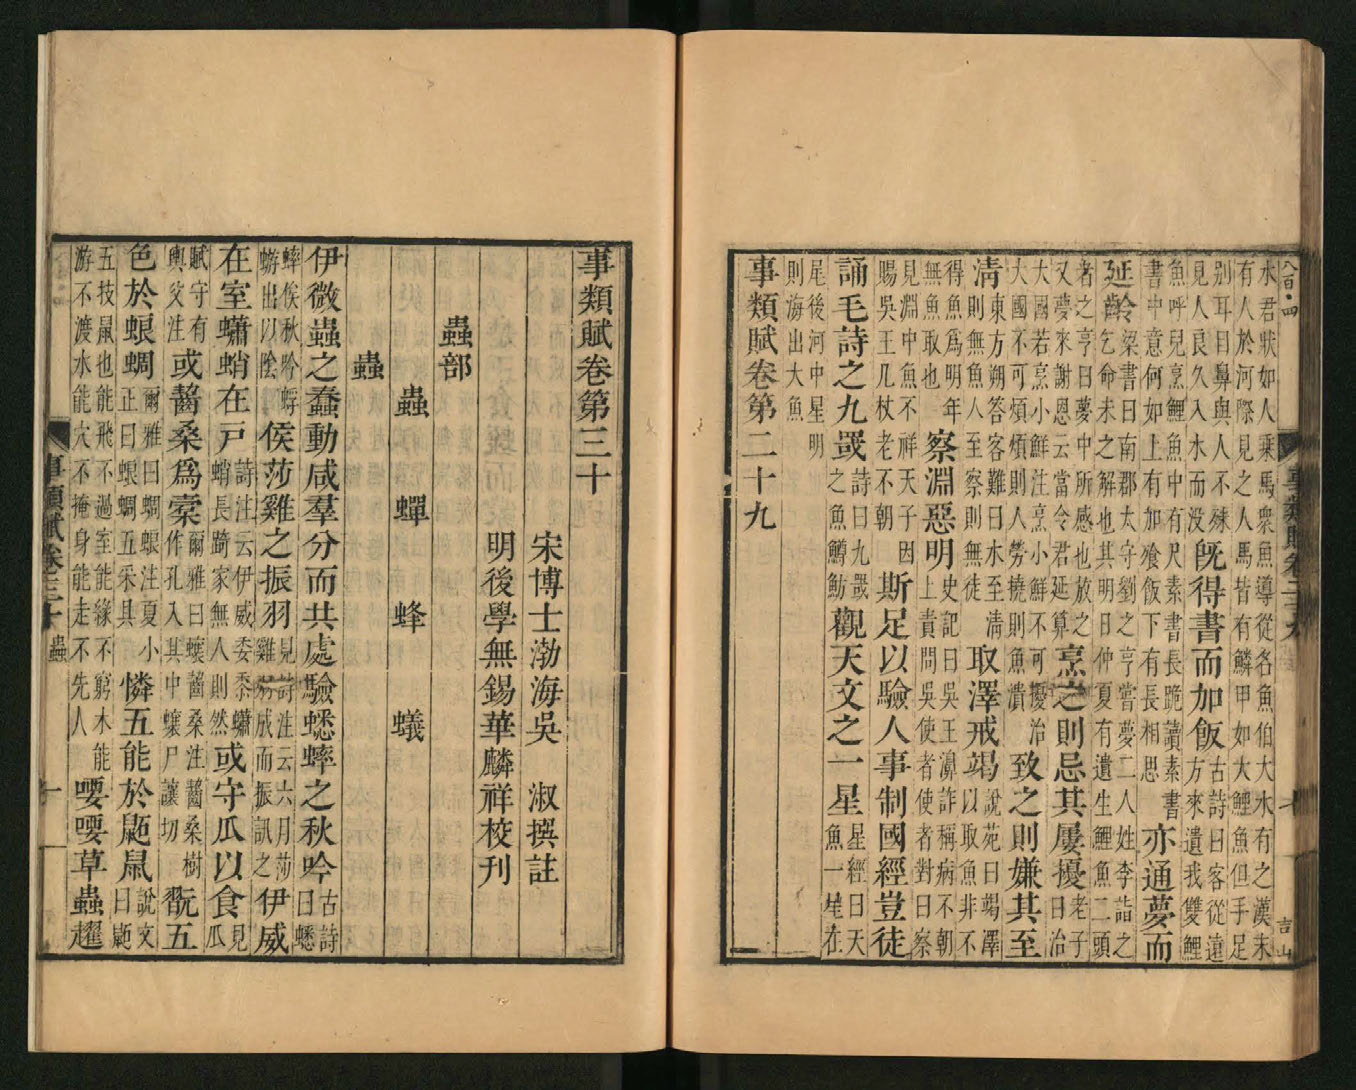 八百四
水君狀如人乘馬衆魚導從各魚伯大水有之漢末
有人於河際見之人馬皆有鱗甲如大鯉魚但手足
別耳目鼻與人不殊
見人良久入水而没
既得書而加飯
古詩曰客從遠
方來遺我雙鯉
魚呼兒烹鯉魚中有尺素書長跪讀素書
書中意何如上有加飡飯下有長相思
亦通夢而
延齡
梁書曰南郡太守劉之亨嘗夢二人姓李詣之
乞命未之解也其明日仲夏有遺生鯉魚二頭
者之亨曰夢中所感也放之
又夢來謝恩云當令君延算
烹之則忌其屢擾
老子
曰治
大國若烹小鮮注烹小鮮不可擾治
大國不可煩煩則人勞撓則魚潰
致之則嫌其至
清
東方朔答客難曰水至清
則無魚人至察則無徒
取澤戒竭
說苑曰竭澤
以取魚非不
得魚爲明年
無魚取也
察淵惡明
史記曰吳王濞詐稱病不朝
上責問吳使者使者對曰察
見淵中魚不祥天子因
賜吳王几杖老不朝
斯足以驗人事制國經豈徒
誦毛詩之九罭
詩曰九罭
之魚鱒魴
觀天文之一星
星經曰天
魚一星在
尾後河中星明
則海出大魚
事類賦卷第二十九
事類賦卷第三十
宋博士渤海吳 淑撰註
明後學無錫華麟祥校刊
蟲部
蟲 蟬 蜂 蟻
蟲
伊微蟲之蠢動咸羣分而共處驗蟋蟀之秋吟
古詩
曰蟋
蟀俟秋吟蜉
蝣出以陰
侯莎雞之振羽
見詩注云六月莎
雞羽成而振訊之
伊威
在室蠨蛸在戸
詩注云伊威委黍蠨
蛸長踦家無人則然
或守瓜以食瓜
見
賦守有
輿父注
或齧桑爲蠹
爾雅曰蠰齧桑注齧桑樹
作孔入其中蠰尸讓切
翫五
色於蜋蜩
爾雅曰蜩蜋注夏小
正曰蜋蜩五采具
憐五能於鼫鼠
說文
曰鼫
五技鼠也能飛不過室能緣不窮木能
游不渡水能穴不掩身能走不先人
喓喓草蟲趯
事類賦卷三十 蟲 一